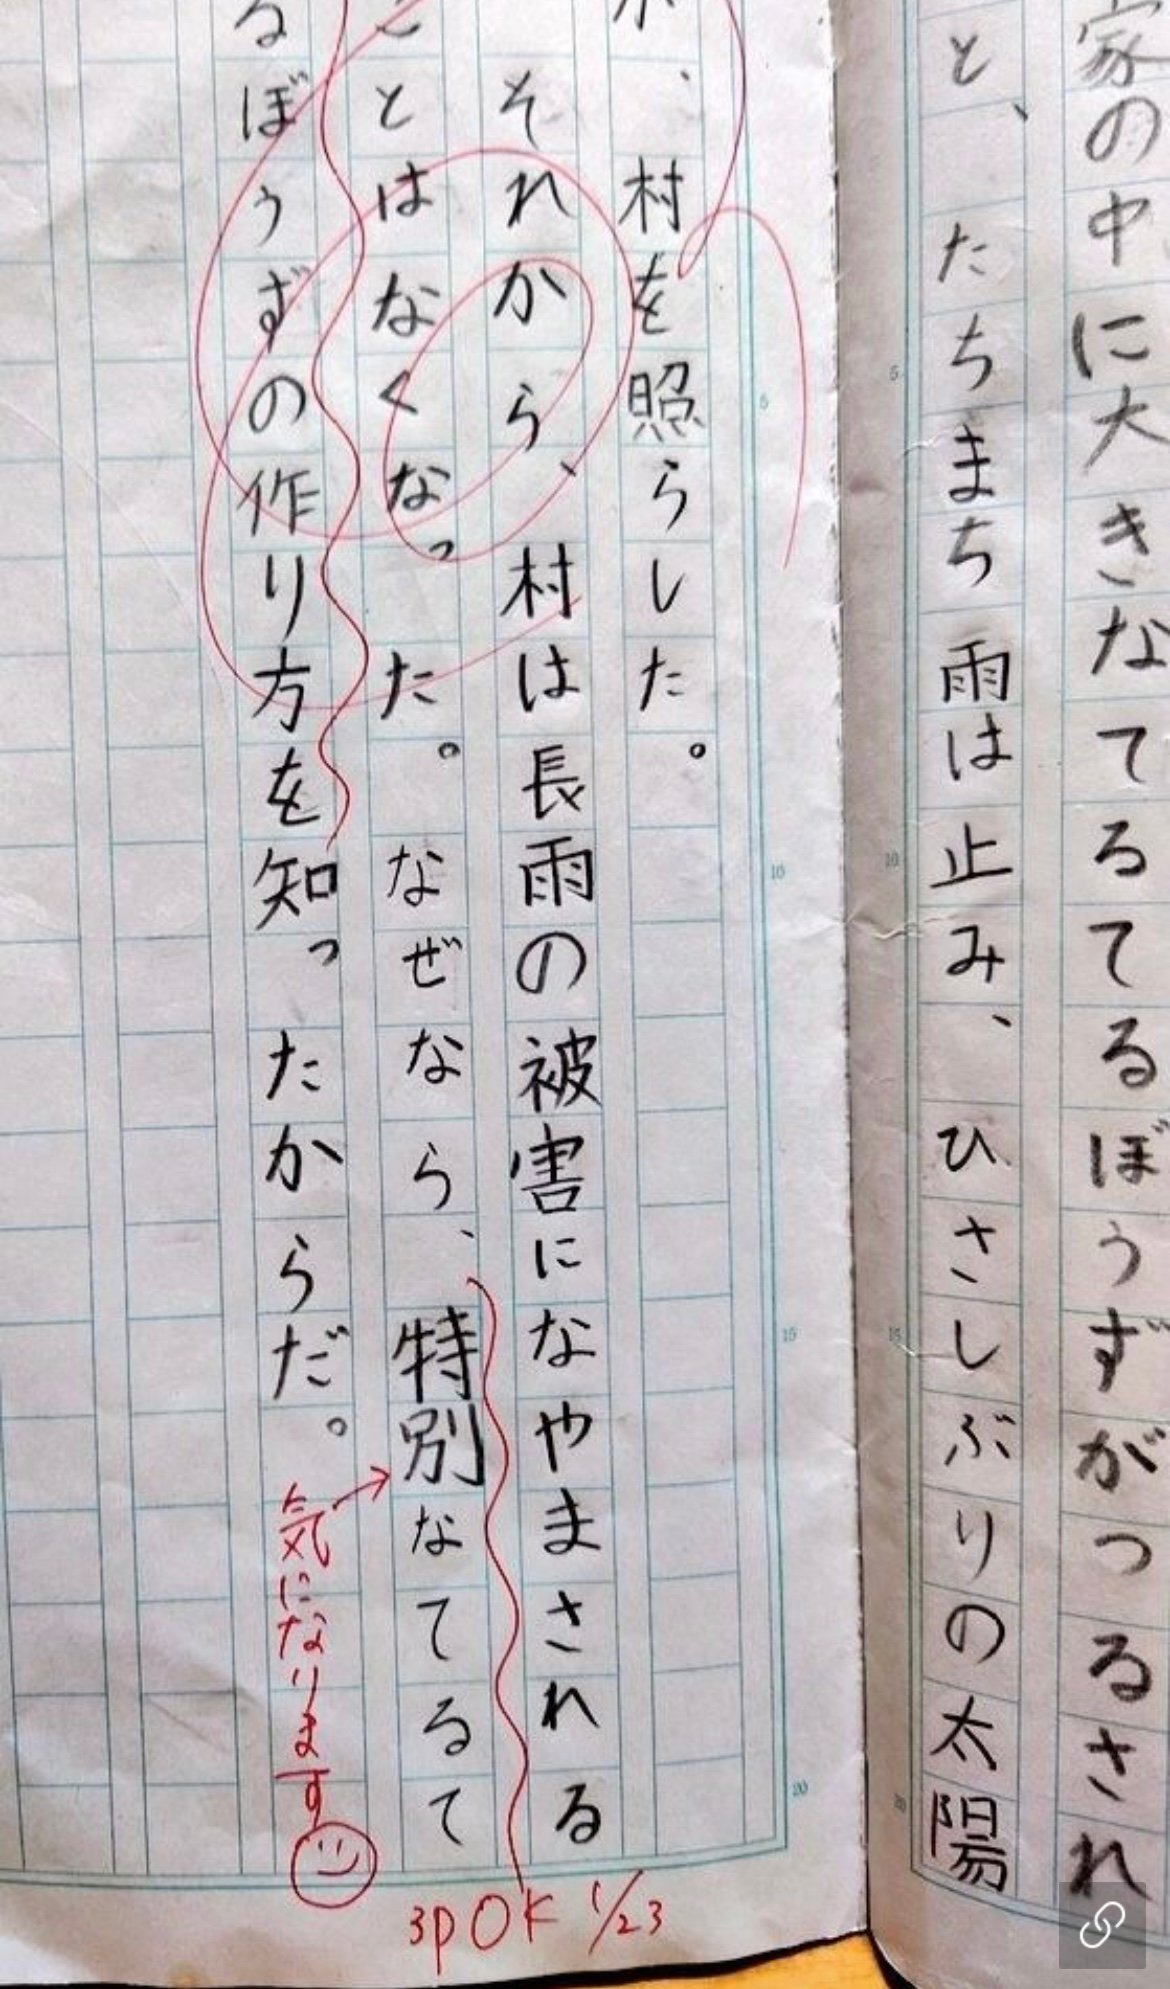 家の中に大きなてるてるぼうずがつるされ
と、たちまち雨は止み、ひさしぶりの太陽
、村を照らした。
それから、村は長雨の被害になやまされる
ことはなくなった。なぜなら、特別なてるて
るぼうずの作り方を知ったからだ。
気になります
3p OK 1/23
5
10
15
20
5
10
15
20